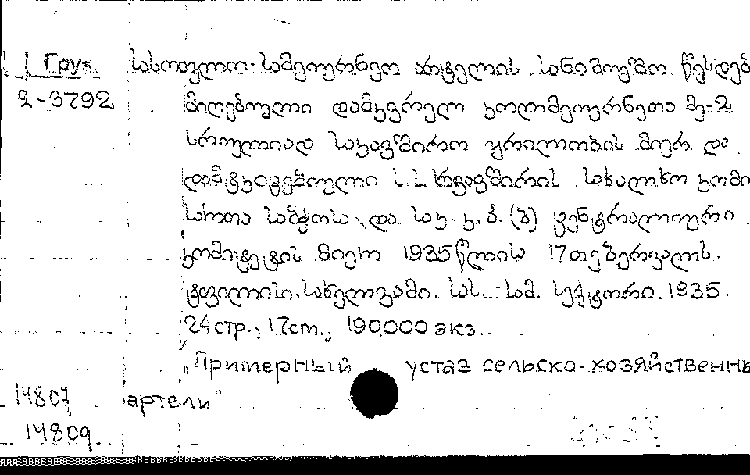 Груз. სასოფლო-სამეურნეო არტელის სანიმუშო წესდებ
2-3792 მიღებული დამკვრელ კოლმეურნეთა მე-2
სრულიად საკავშირო ყრილობის მიერ და
დამტკიცებული ს.ს.რ.კავშირის სახალხო კომი
სართა საბჭოსა და საკ. კ. პ. (ბ) ცენტრალური
კომიტეტის მიერ 1935 წლის 17 თებერვალს.
ტფილისი. სახელგამი. სას.-სამ. სექტორი. 1935.
24 стр., 17cm., 190,000 экз.
"Примерный устав сельско-хозяйственны
14807 артели"
14809